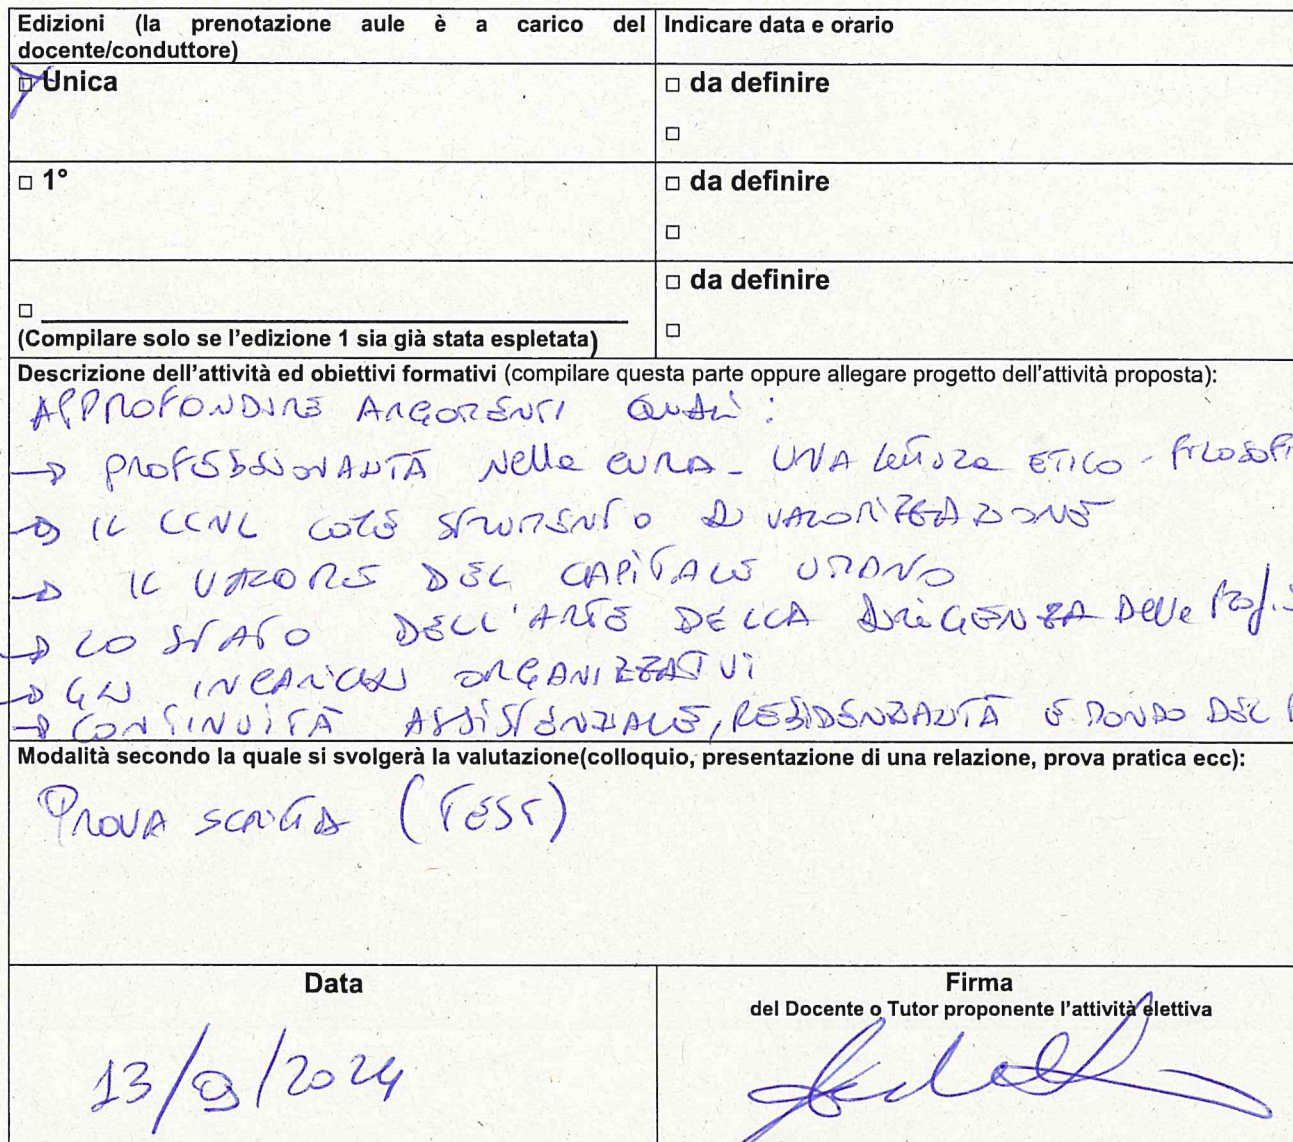 Edizioni (la prenotazione aule è a carico del docente/conduttore)
Indicare data e orario
□ Unica
□ da definire
□
□ 1°
□ da definire
□
□
(Compilare solo se l'edizione 1 sia già stata espletata)
□ da definire
□
Descrizione dell'attività ed obiettivi formativi (compilare questa parte oppure allegare progetto dell'attività proposta):
APPROFONDIRE ARGOMENTI QUALI:
→ PROFESSIONALITÀ Nella CURA - UNA lettura ETICO - FILOSOFI
→ IL CCNL COME STRUMENTO DI VALORIZZAZIONE
→ IL VALORE DEL CAPITALE UMANO
→ LO STATO DELL'ARTE DELLA DIRIGENZA Delle Prof.
→ GLI INCARICHI ORGANIZZATIVI
→ CONTINUITÀ ASSISTENZIALE, RESIDENZIALITÀ E MONDO DEL
Modalità secondo la quale si svolgerà la valutazione(colloquio, presentazione di una relazione, prova pratica ecc):
PROVA SCRITTA (TEST)
Data
13/ /2024
Firma
del Docente o Tutor proponente l'attività elettiva